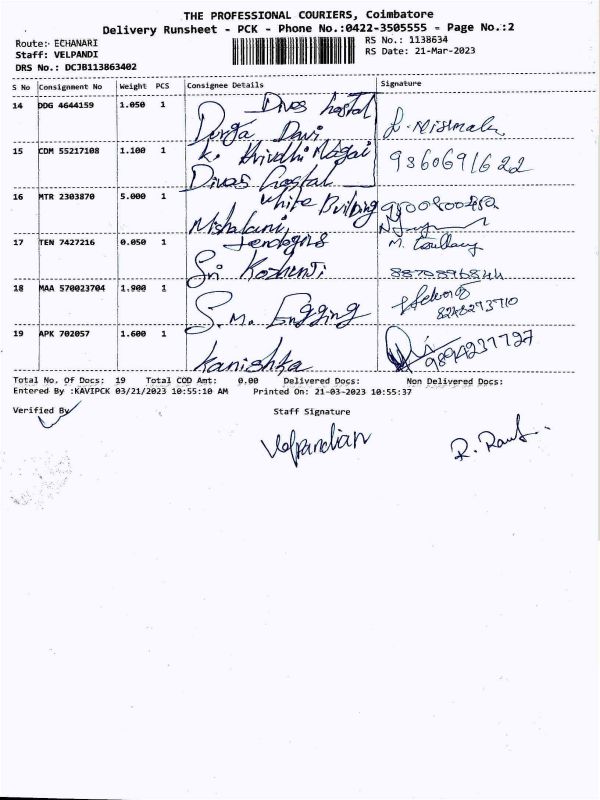 THE PROFESSIONAL COURIERS, Coimbatore
Delivery Runsheet - PCK - Phone No.:0422-3505555 - Page No.:2
Route:- ECHANARI
RS No.: 1138634
Staff: VELPANDI
RS Date: 21-Mar-2023
DRS No.: DCJB113863402
S No Consignment No Weight PCS Consignee Details Signature
14 DDG 4644159 1.050 1
Durga Davi
15 CDM 55217108 1.100 1
9860691622
16 MTR 2303870 5.000 1
White Building
17 TEN 7427216 0.050 1
Sri
18 MAA 570023704 1.900 1
S.M. Engging
8248293710
19 APK 702057 1.600 1
Kanishka
9894237727
Total No. Of Docs: 19 Total COD Amt: 0.00 Delivered Docs: Non Delivered Docs:
Entered By :KAVIPCK 03/21/2023 10:55:10 AM Printed On: 21-03-2023 10:55:37
Verified By Staff Signature
Velpandian